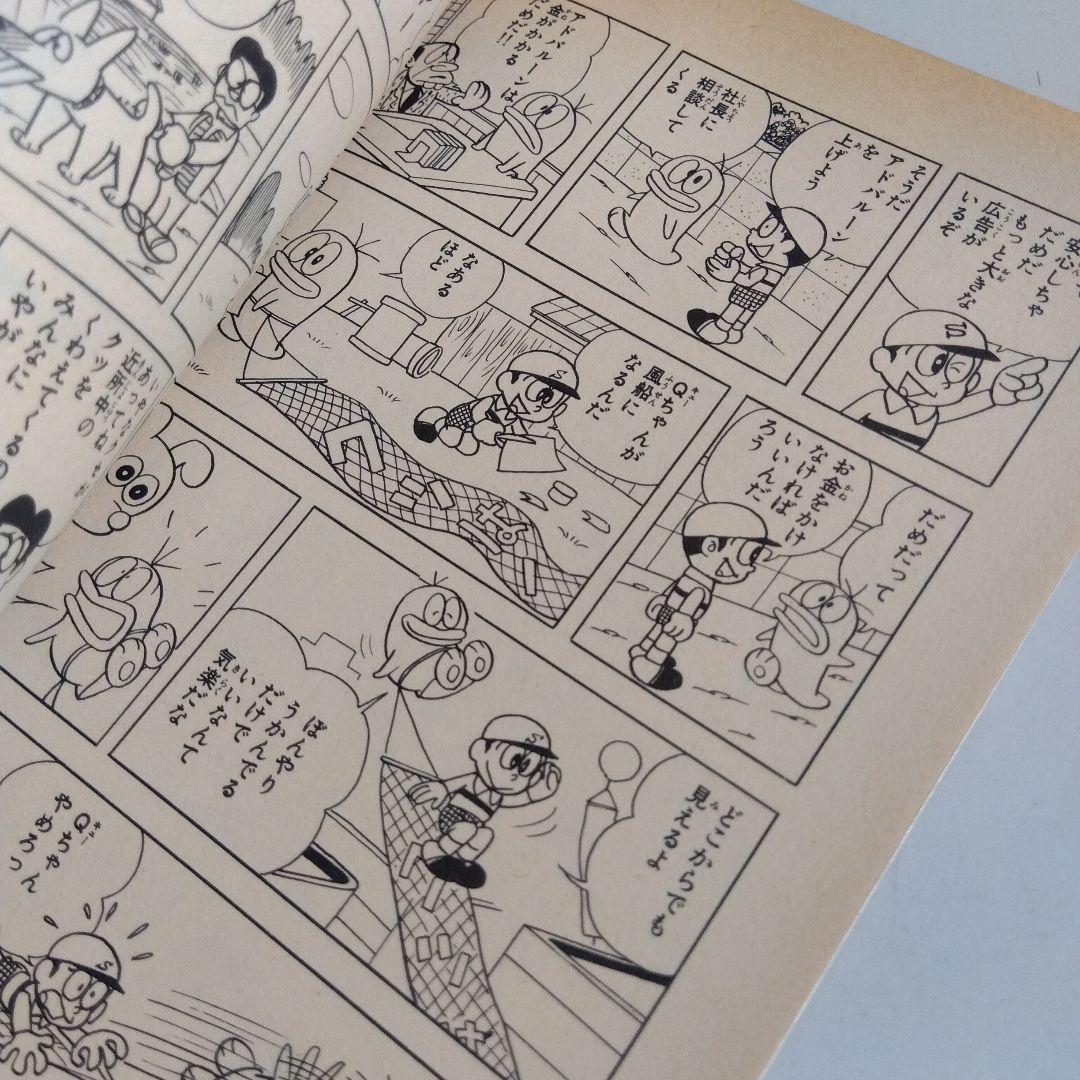 安心しちゃ
だめだ
もっと大きな
広告が
いるぞ
そうだ
アドバルーン
を
上げよう
社長に
相談して
くる
アドバルーンは
金がかかる
だめだ!!
だめだって
お金をかけ
なければ
いいんだ
ろう
Qちゃんが
風船に
なるんだ
なある
ほど
どこからでも
見えるよ
ぼんやり
うかんでる
だけで
いいなんて
気楽だな
Qちゃん
やめろっ
近所中の
クツを
くわえてくるの
みんなに
いやが